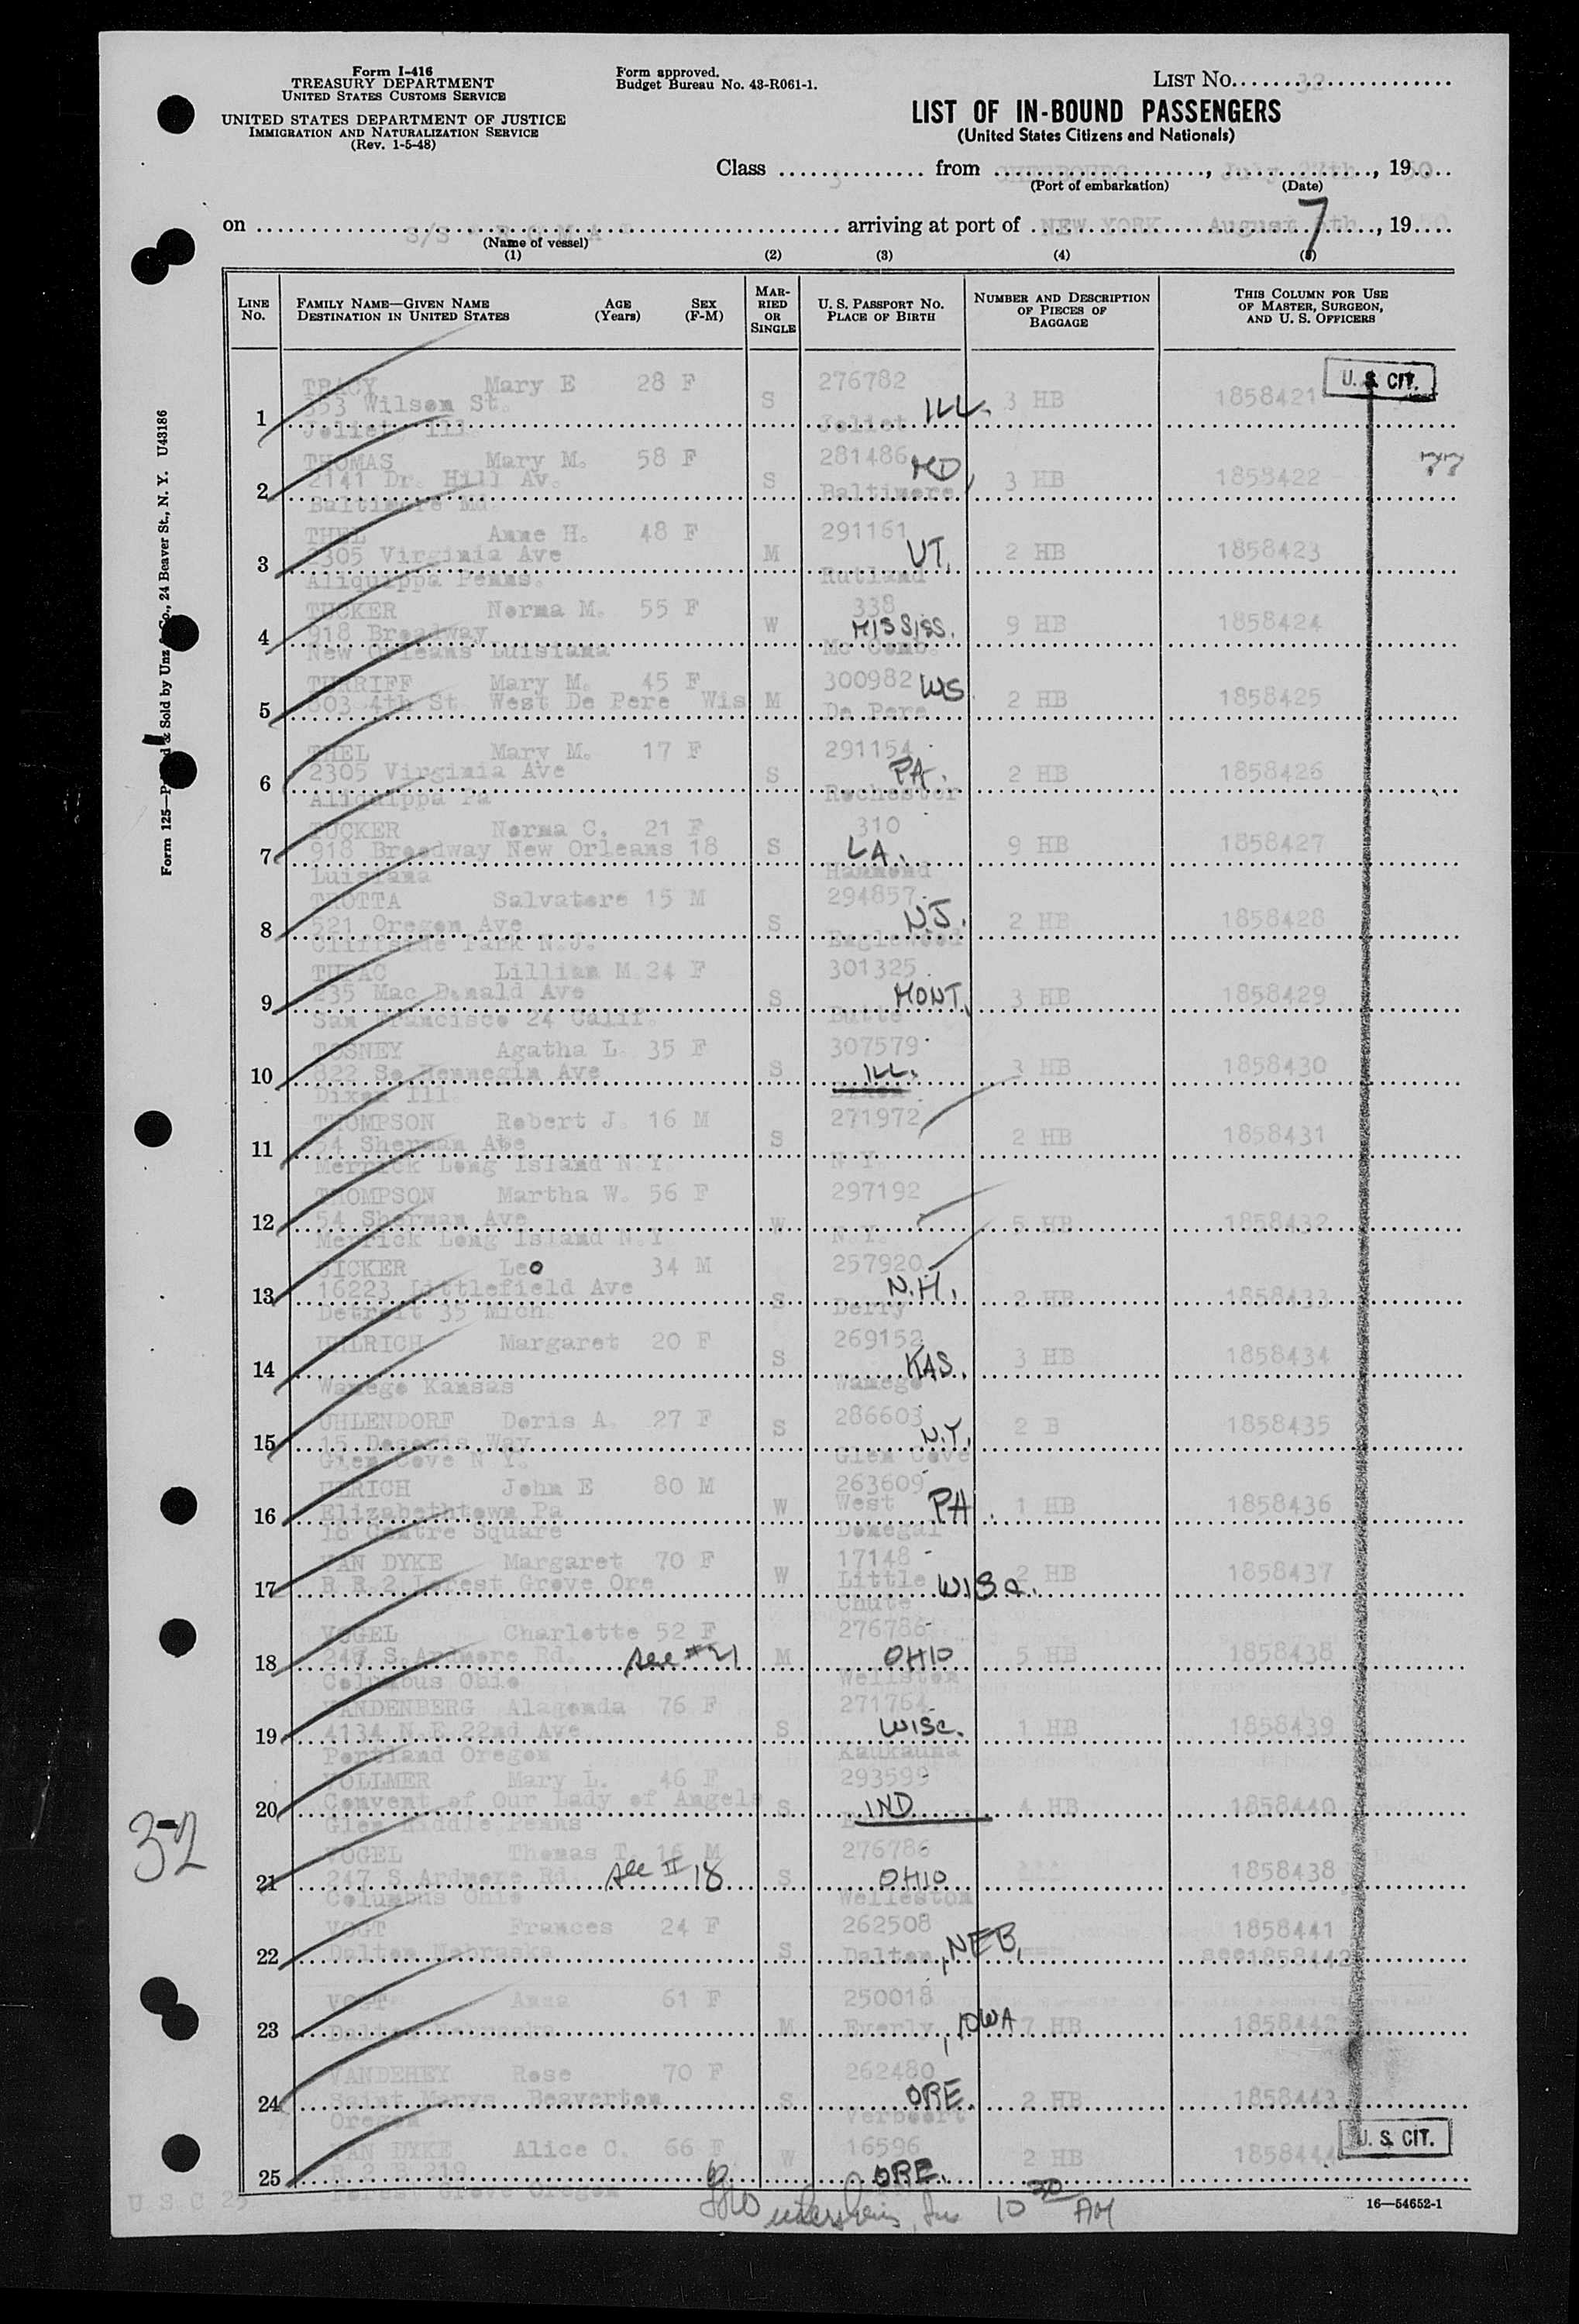 Form I-416
TREASURY DEPARTMENT
UNITED STATES CUSTOMS SERVICE
UNITED STATES DEPARTMENT OF JUSTICE
IMMIGRATION AND NATURALIZATION SERVICE
(Rev. 1-5-48)
Form approved.
Budget Bureau No. 43-R061-1.
LIST NO. 32
LIST OF IN-BOUND PASSENGERS
(United States Citizens and Nationals)
Class 3 from CHERBOURG, July th, 1950
(Port of embarkation) (Date)
on S/S " R O M A " arriving at port of NEW YORK August 7 th, 1950
(Name of vessel)
(1) (2) (3) (4) (5)
LINE NO. FAMILY NAME—GIVEN NAME DESTINATION IN UNITED STATES AGE (Years) SEX (F-M) MARRIED OR SINGLE U. S. PASSPORT NO. PLACE OF BIRTH NUMBER AND DESCRIPTION OF PIECES OF BAGGAGE THIS COLUMN FOR USE OF MASTER, SURGEON, AND U. S. OFFICERS
U. S. CIT.
1 TRACY Mary E 28 F S 276782 3 HB 1858421
353 Wilson St.
Joliet Ill. Joliet ILL.
2 THOMAS Mary M. 58 F S 281486 MD, 3 HB 1858422
2141 Dr. Hill Av.
Baltimore Md. Baltimore
3 THEL Anne H. 48 F M 291161 VT. 2 HB 1858423
2305 Virginia Ave
Aliquippa Penns. Rutland
4 TUCKER Norma M. 55 F W 338 MISSISS. 9 HB 1858424
918 Broadway
New Orleans Luisiana Mc Comb.
5 TURRIFF Mary M. 45 F M 300982 WIS 2 HB 1858425
803 4th St West De Pere Wis De Pere
6 THEL Mary M. 17 F S 291154 PA. 2 HB 1858426
2305 Virginia Ave
Aliquippa Pa Rochester
7 TUCKER Norma C. 21 F S 310 LA. 9 HB 1858427
918 Broadway New Orleans 18
Luisiana Hammond
8 TROTTA Salvatore 15 M S 294857 N.J. 2 HB 1858428
521 Oregon Ave
Cliffside Park N.J. Englewood
9 TUPAC Lillian M 24 F S 301325 MONT. 3 HB 1858429
235 Mac Donald Ave
San Francisco 24 Calif. Butte
10 TOSNEY Agatha L. 35 F S 307579 ILL. 3 HB 1858430
822 So Hennegin Ave
Dixon Ill. Dixon
11 THOMPSON Robert J. 16 M S 271972 2 HB 1858431
54 Sherman Abe
Merrick Long Island N.Y. N Y
12 THOMPSON Martha W. 56 F W 297192 5 HB 1858432
54 Sherman Ave
Merrick Long Island N.Y N.Y.
13 UICKER Leo 34 M S 257920 N.H. 2 HB 1858433
16223 Littlefield Ave
Detroit 35 Mich. Derry
14 UHLRICH Margaret 20 F S 269152 KAS. 3 HB 1858434
Wamego Kansas Wamego
15 UHLENDORF Doris A. 27 F S 286603 N.Y. 2 B 1858435
15 Way
Glen Cove N Y. Glen Cove
16 ULRICH John E 80 M W 263609 PA. 1 HB 1858436
Elizabethtown Pa West
18 Centre Square Donegal
17 VAN DYKE Margaret 70 F W 17148 2 HB 1858437
R R 2 Forest Grove Ore Little WISC.
Chute
18 VOGEL Charlotte 52 F M 276786 OHIO 5 HB 1858438
247 S. Ardmore Rd. see #21
Columbus Ohio Wellston
19 VANDENBERG Alagonda 76 F S 271764 WISC. 1 HB 1858439
4134 N.E 22nd Ave
Portland Oregon Kaukauna
20 VOLLMER Mary L. 46 F S 293599 IND 4 HB 1858440
Convent of Our Lady of Angels
Glen Riddle Penns
32
21 VOGEL Thomas T. 16 M S 276786 OHIO 1858438
247 S Ardmore Rd. see II 18
Columbus Ohio Welleston
22 VOGT Frances 24 F S 262508 1858441
Dalton Nebraska Dalton, NEB. see 1858442
23 VOGT Anna 61 F M 250018 7 HB 1858442
Dalton Nebraska Everly, IOWA
24 VANDEHEY Rose 70 F S 262480 ORE. 2 HB 1858443
Saint Marys Beaverton
Oregon Verboort
25 VAN DYKE Alice C. 66 F W 16596 ORE. 2 HB 1858444
R 2 B 219
Forest Grove Oregon
U. S. CIT.
U S C 25
10 30 AM
16—54652-1
Form 125—Printed & Sold by Unz & Co., 24 Beaver St., N. Y. U43186